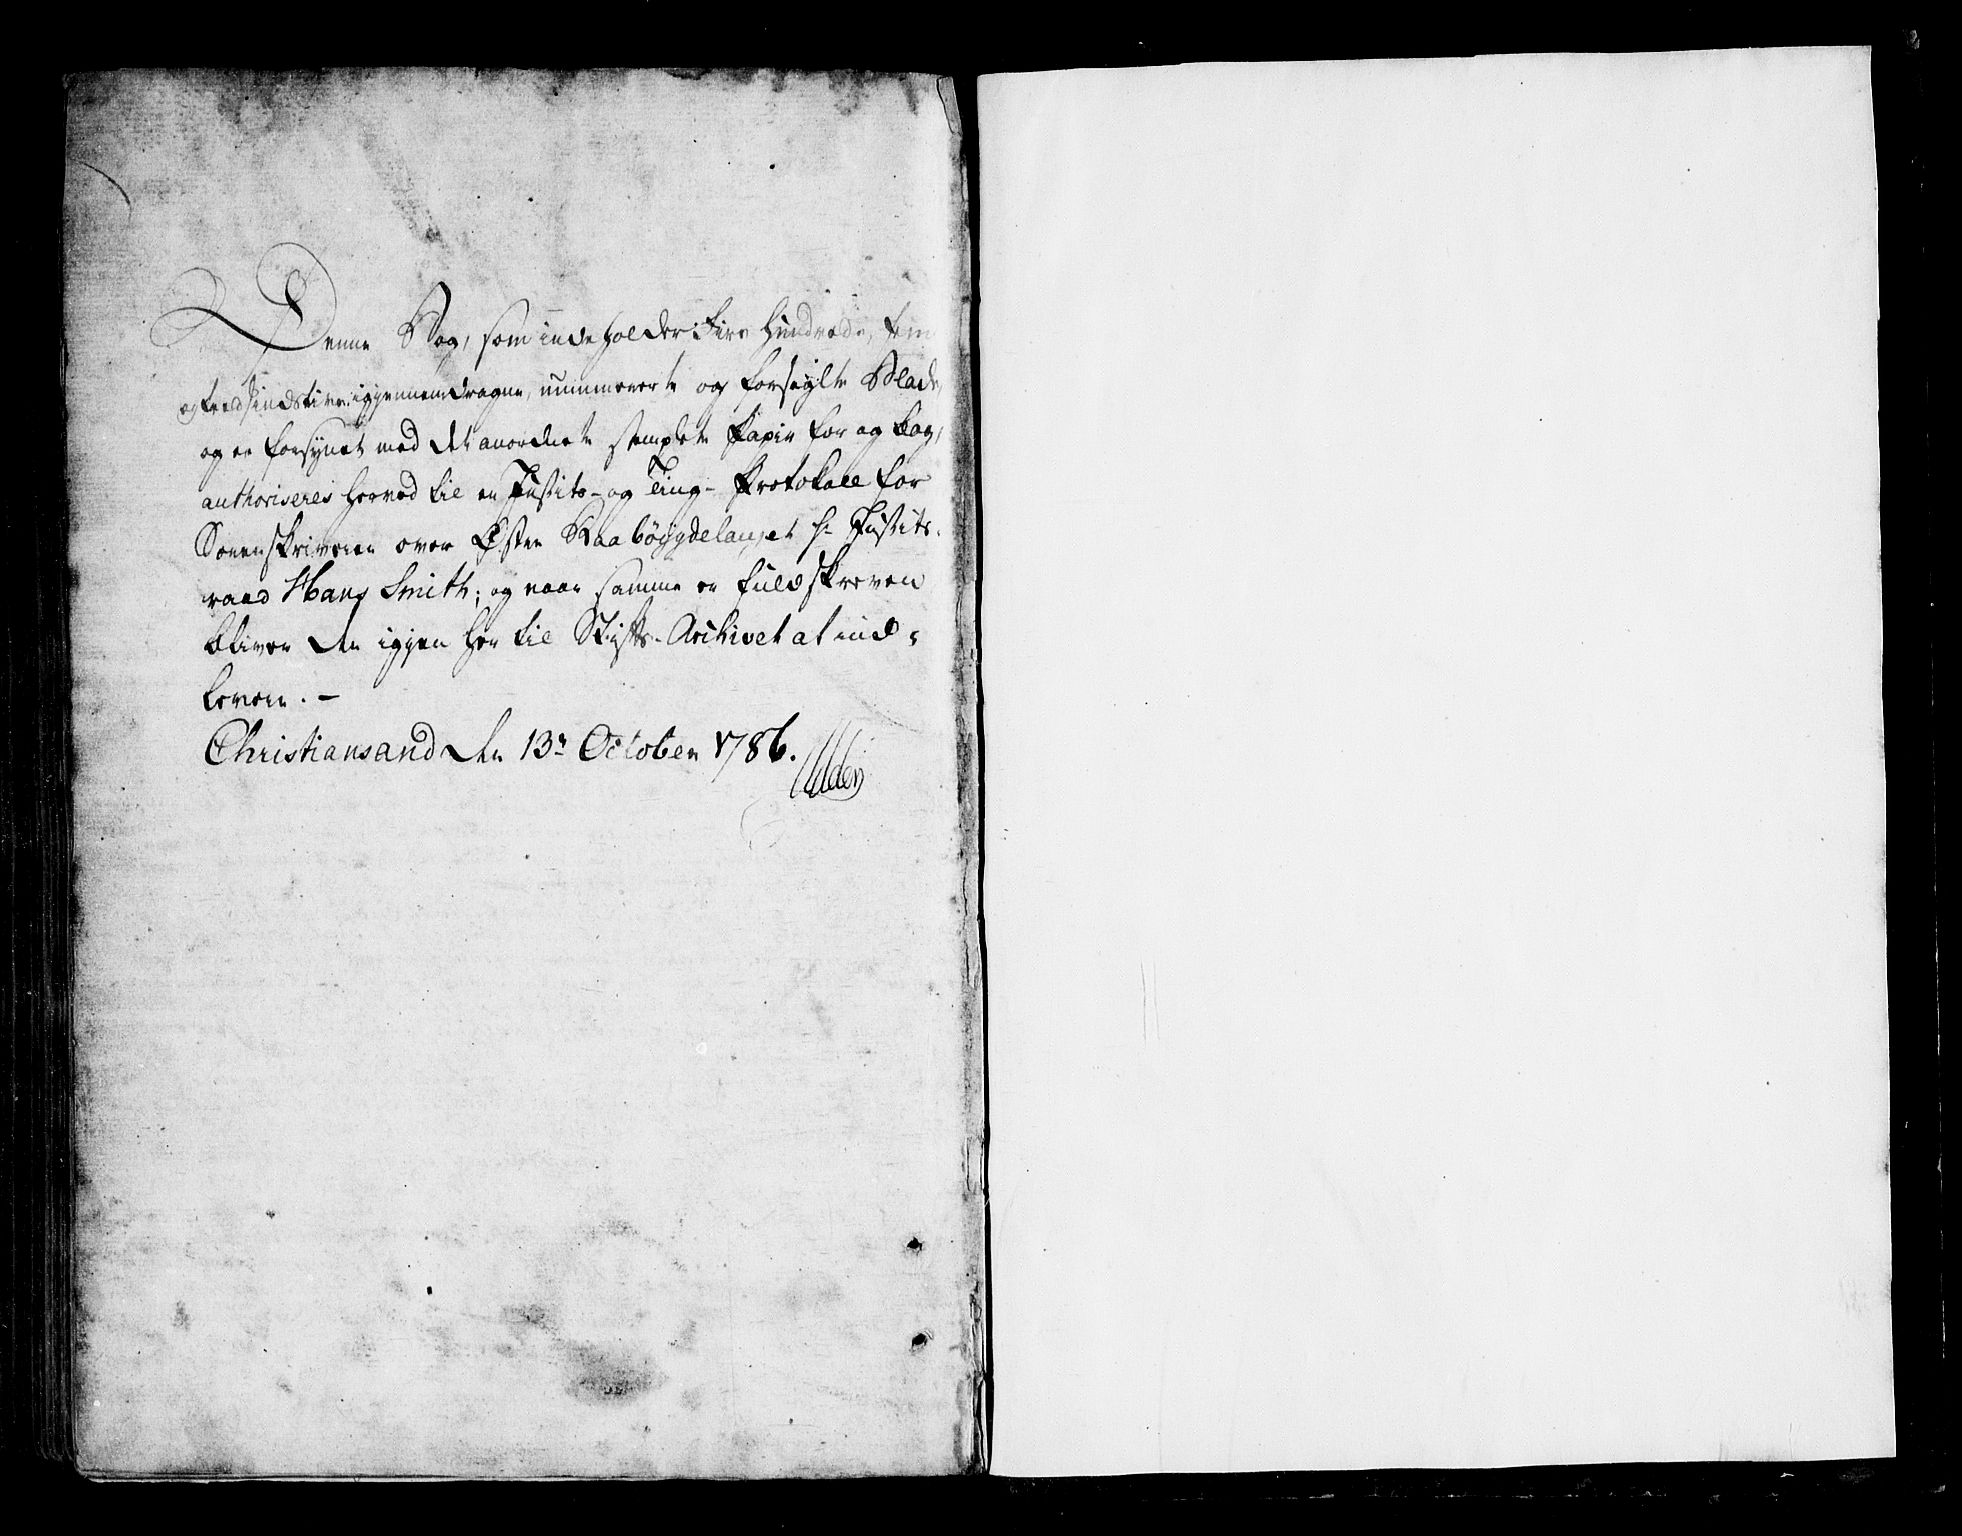 Denne Bog, som indeholder: Fire Hundrede, fem
og treds sindstive: igjennemdragne, nummererte og forseglte Blade,
og er forsynet med det anordnete stemplete Papir for og bag,
authoriseres herved til en Justits- og Ting- Protokoll for
Sorenskriveren over Øster Raabøygdelauget hr Justits-
raad Hans Smith; og naar samme er fuldskreven
bliver den igjen her til Stifts-Archivet at ind-
levere. -
Christiansand den 13de October 1786.
Adeler